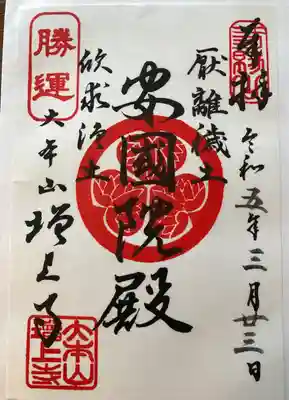 奉拝
令和五年三月廿三日
厭離穢土
安國院殿
欣求浄土
勝運
大本山増上寺
大本山
増上寺